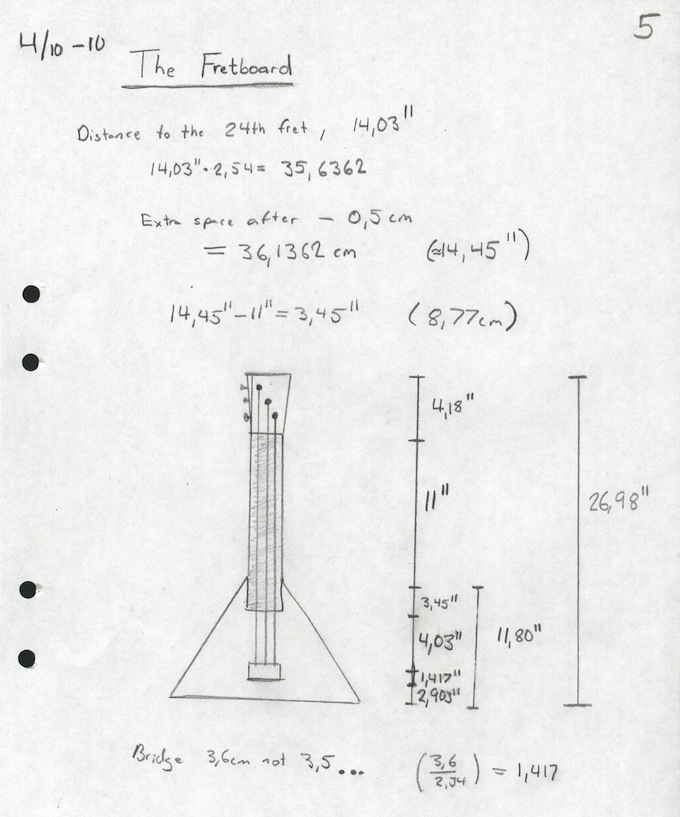 5
4/10 -10
The Fretboard
Distance to the 24th fret, 14,03"
14,03" · 2,54 = 35,6362
Extra space after - 0,5 cm
= 36,1362 cm (≈14,45")
14,45" - 11" = 3,45" (8,77cm)
4,18"
11"
26,98"
3,45"
4,03"
11,80"
1,417"
2,903"
Bridge 3,6cm not 3,5...
(3,6/2,54) = 1,417